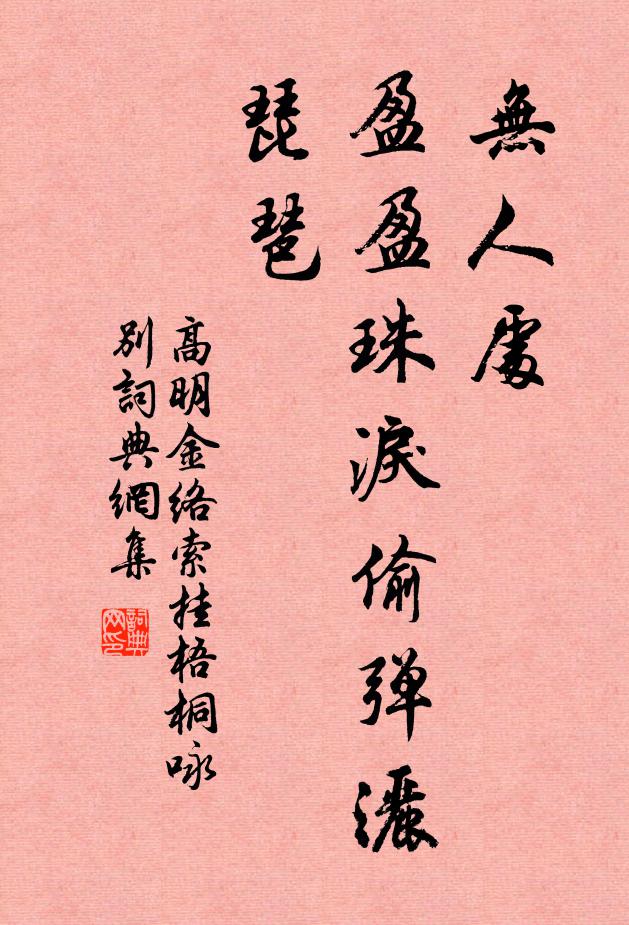 無人處
盈盈珠淚偷彈灑
琵琶
高明金絡索挂梧桐咏
別詞典網集
詞典
网印